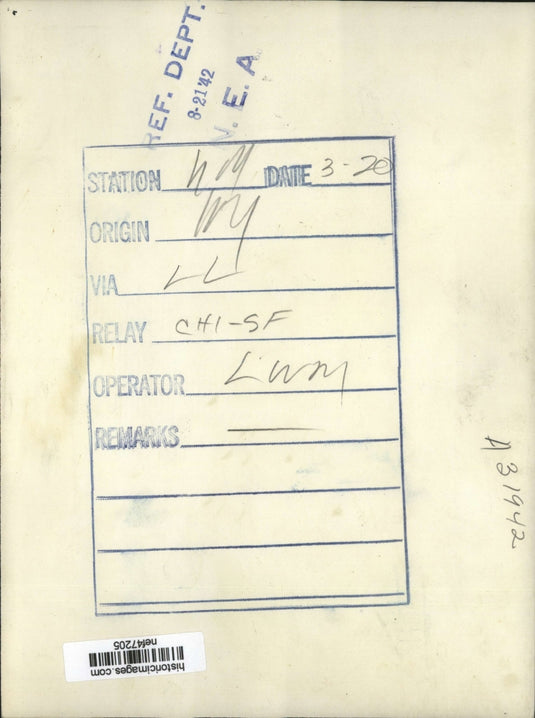 REF. DEPT.
8-21 '42
N. E. A
STATION NY DATE 3-20
ORIGIN NY
VIA LL
RELAY CHI-SF
OPERATOR LWM
REMARKS —
A 31942
historicimages.com
nef47205